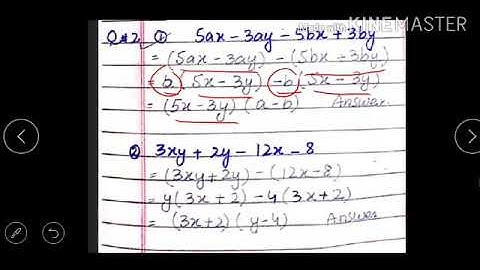 Made with KINEMASTER
Q#2 ① 5ax-3ay-5bx+3by
= (5ax-3ay)-(5bx-3by)
= b (5x-3y) -b (5x-3y)
= (5x-3y) (a-b) Answer.
② 3xy+2y-12x-8
= (3xy+2y)-(12x-8)
= y(3x+2)-4(3x+2)
= (3x+2) (y-4) Answer